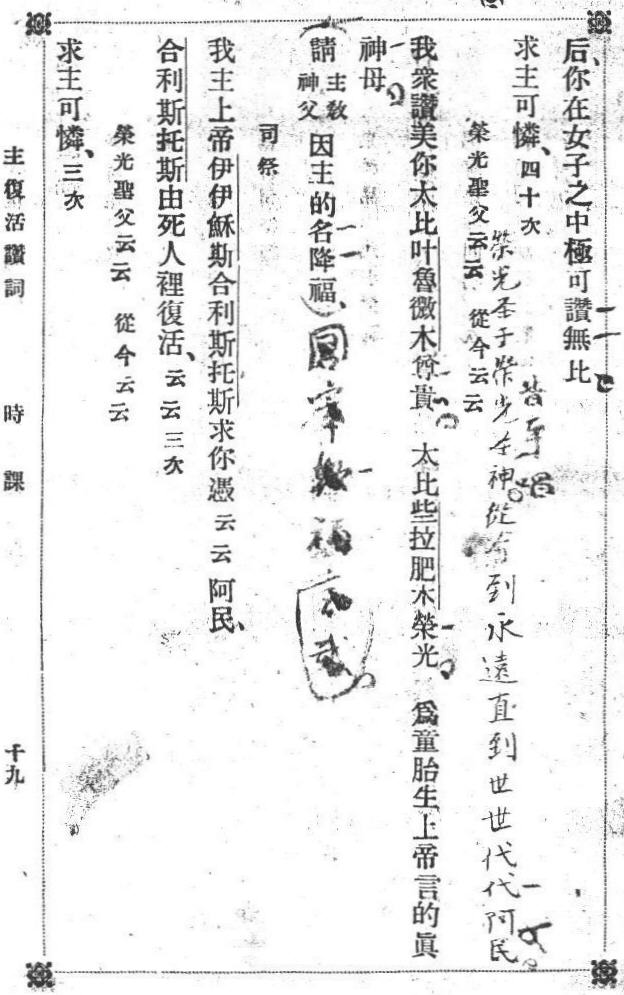 后、你在女子之中極可讚無比
求主可憐、四十次
榮光聖父云云 從今云云
榮光圣子榮光圣神。從今到永遠直到世世代代阿民。
我衆讚美你太比叶魯微木尊貴。太比些拉肥木榮光。爲童胎生上帝言的眞
神母。
(請主教神父因主的名降福、)
司祭
我主上帝伊伊穌斯合利斯托斯求你憑云云阿民、
合利斯托斯由死人裡復活、云云三次
榮光聖父云云 從今云云
求主可憐、三次
主復活讚詞 時課 千九